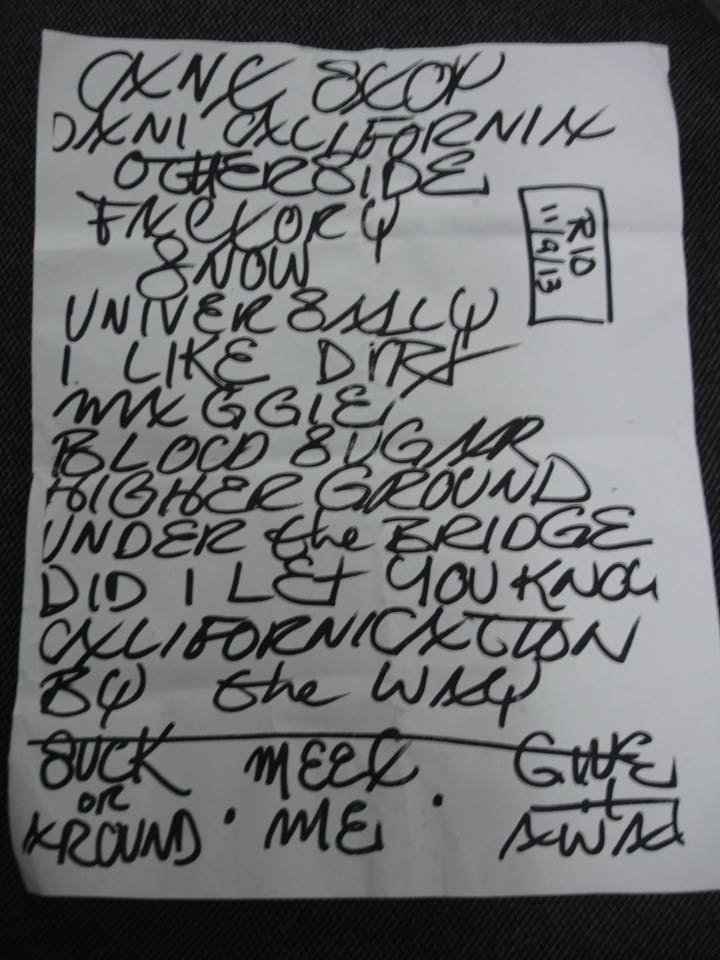 CAN'T STOP
DANI CALIFORNIA
OTHERSIDE
FACTORY
SNOW
UNIVERSALLY
I LIKE DIRT
MAGGIE
BLOOD SUGAR
HIGHER GROUND
UNDER the BRIDGE
DID I LET YOU KNOW
CALIFORNICATION
BY the WAY
SUCK MEET GIVE
OR it
AROUND · ME · AWAY
RIO
11/9/13